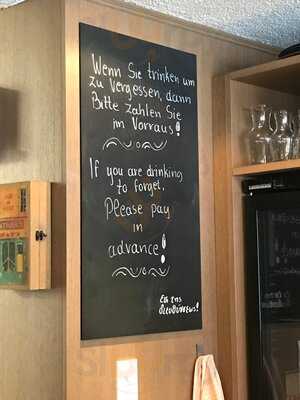 Wenn Sie trinken um
zu Vergessen, dann
Bitte zahlen Sie
im Vorraus!
If you are drinking
to forget,
Please pay
in
advance!